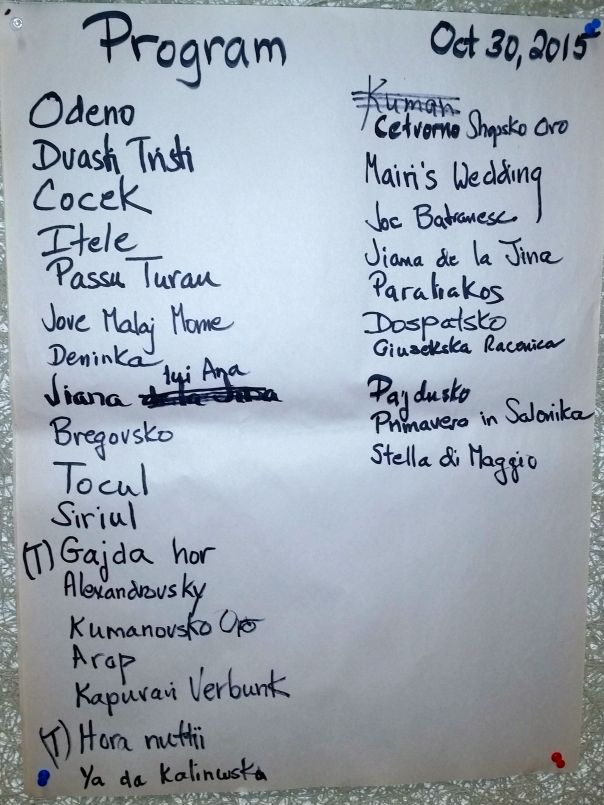 Program
Oct 30, 2015
Odeno
Dvasti Tristi
Cocek
Itele
Passu Turau
Jove Malaj Mome
Deninka
Jiana lui Ana
Bregovsko
Tocul
Siriul
(T) Gajda hor
Alexandrovsky
Kumanovsko Oro
Arap
Kapuvari Verbunk
(T) Hora nuttii
Ya da Kalinuska
Kuman
Cetvorno Shopsko Oro
Mairi's Wedding
Joc Batranesc
Jiana de la Jina
Paraliakos
Dospatsko
Giusekska Racenica
Pajdusko
Primavera in Salonika
Stella di Maggio